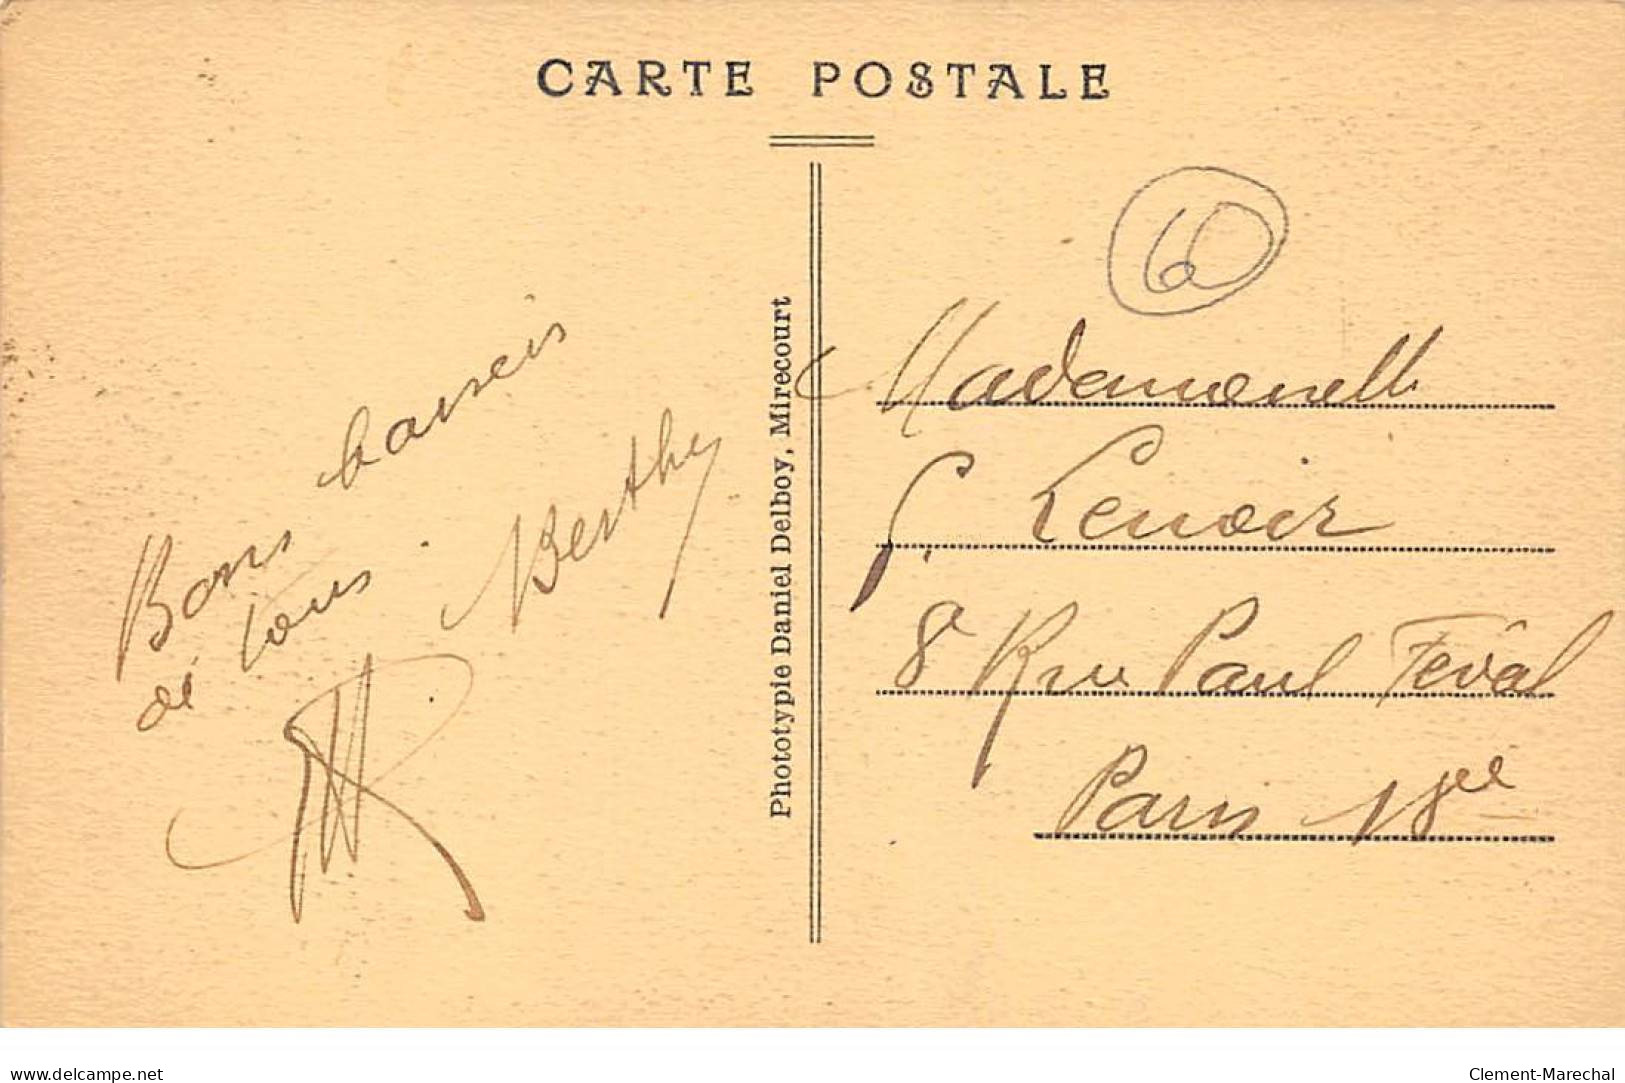 CARTE POSTALE
Bons baisers
de tous.
Berthe
Phototypie Daniel Delboy, Mirecourt
60
Mademoiselle
S. Lenoir
8 Rue Paul Féval
Paris 18ee
www.delcampe.net
Clement-Marechal